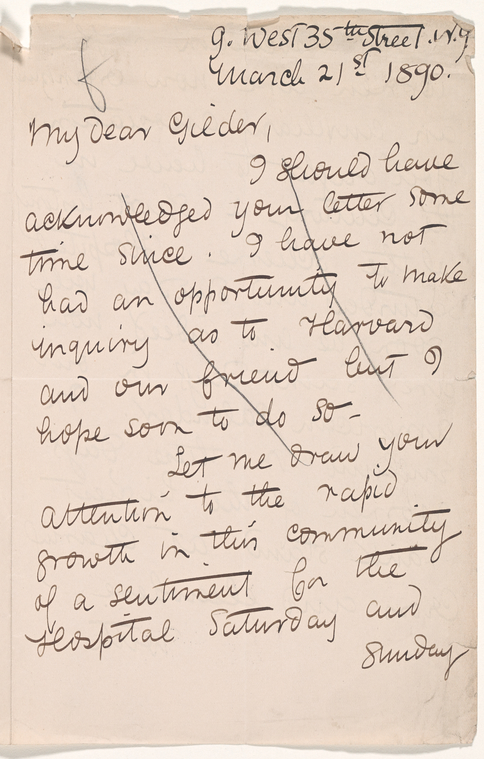 9. West 35th Street. N.Y
March 21st 1890.
My dear Gilder,
I should have
acknowledged your letter some
time since. I have not
had an opportunity to make
inquiry as to Harvard
and our friend but I
hope soon to do so-
Let me draw your
attention to the rapid
growth in this community
of a sentiment for the
Hospital Saturday and
Sunday